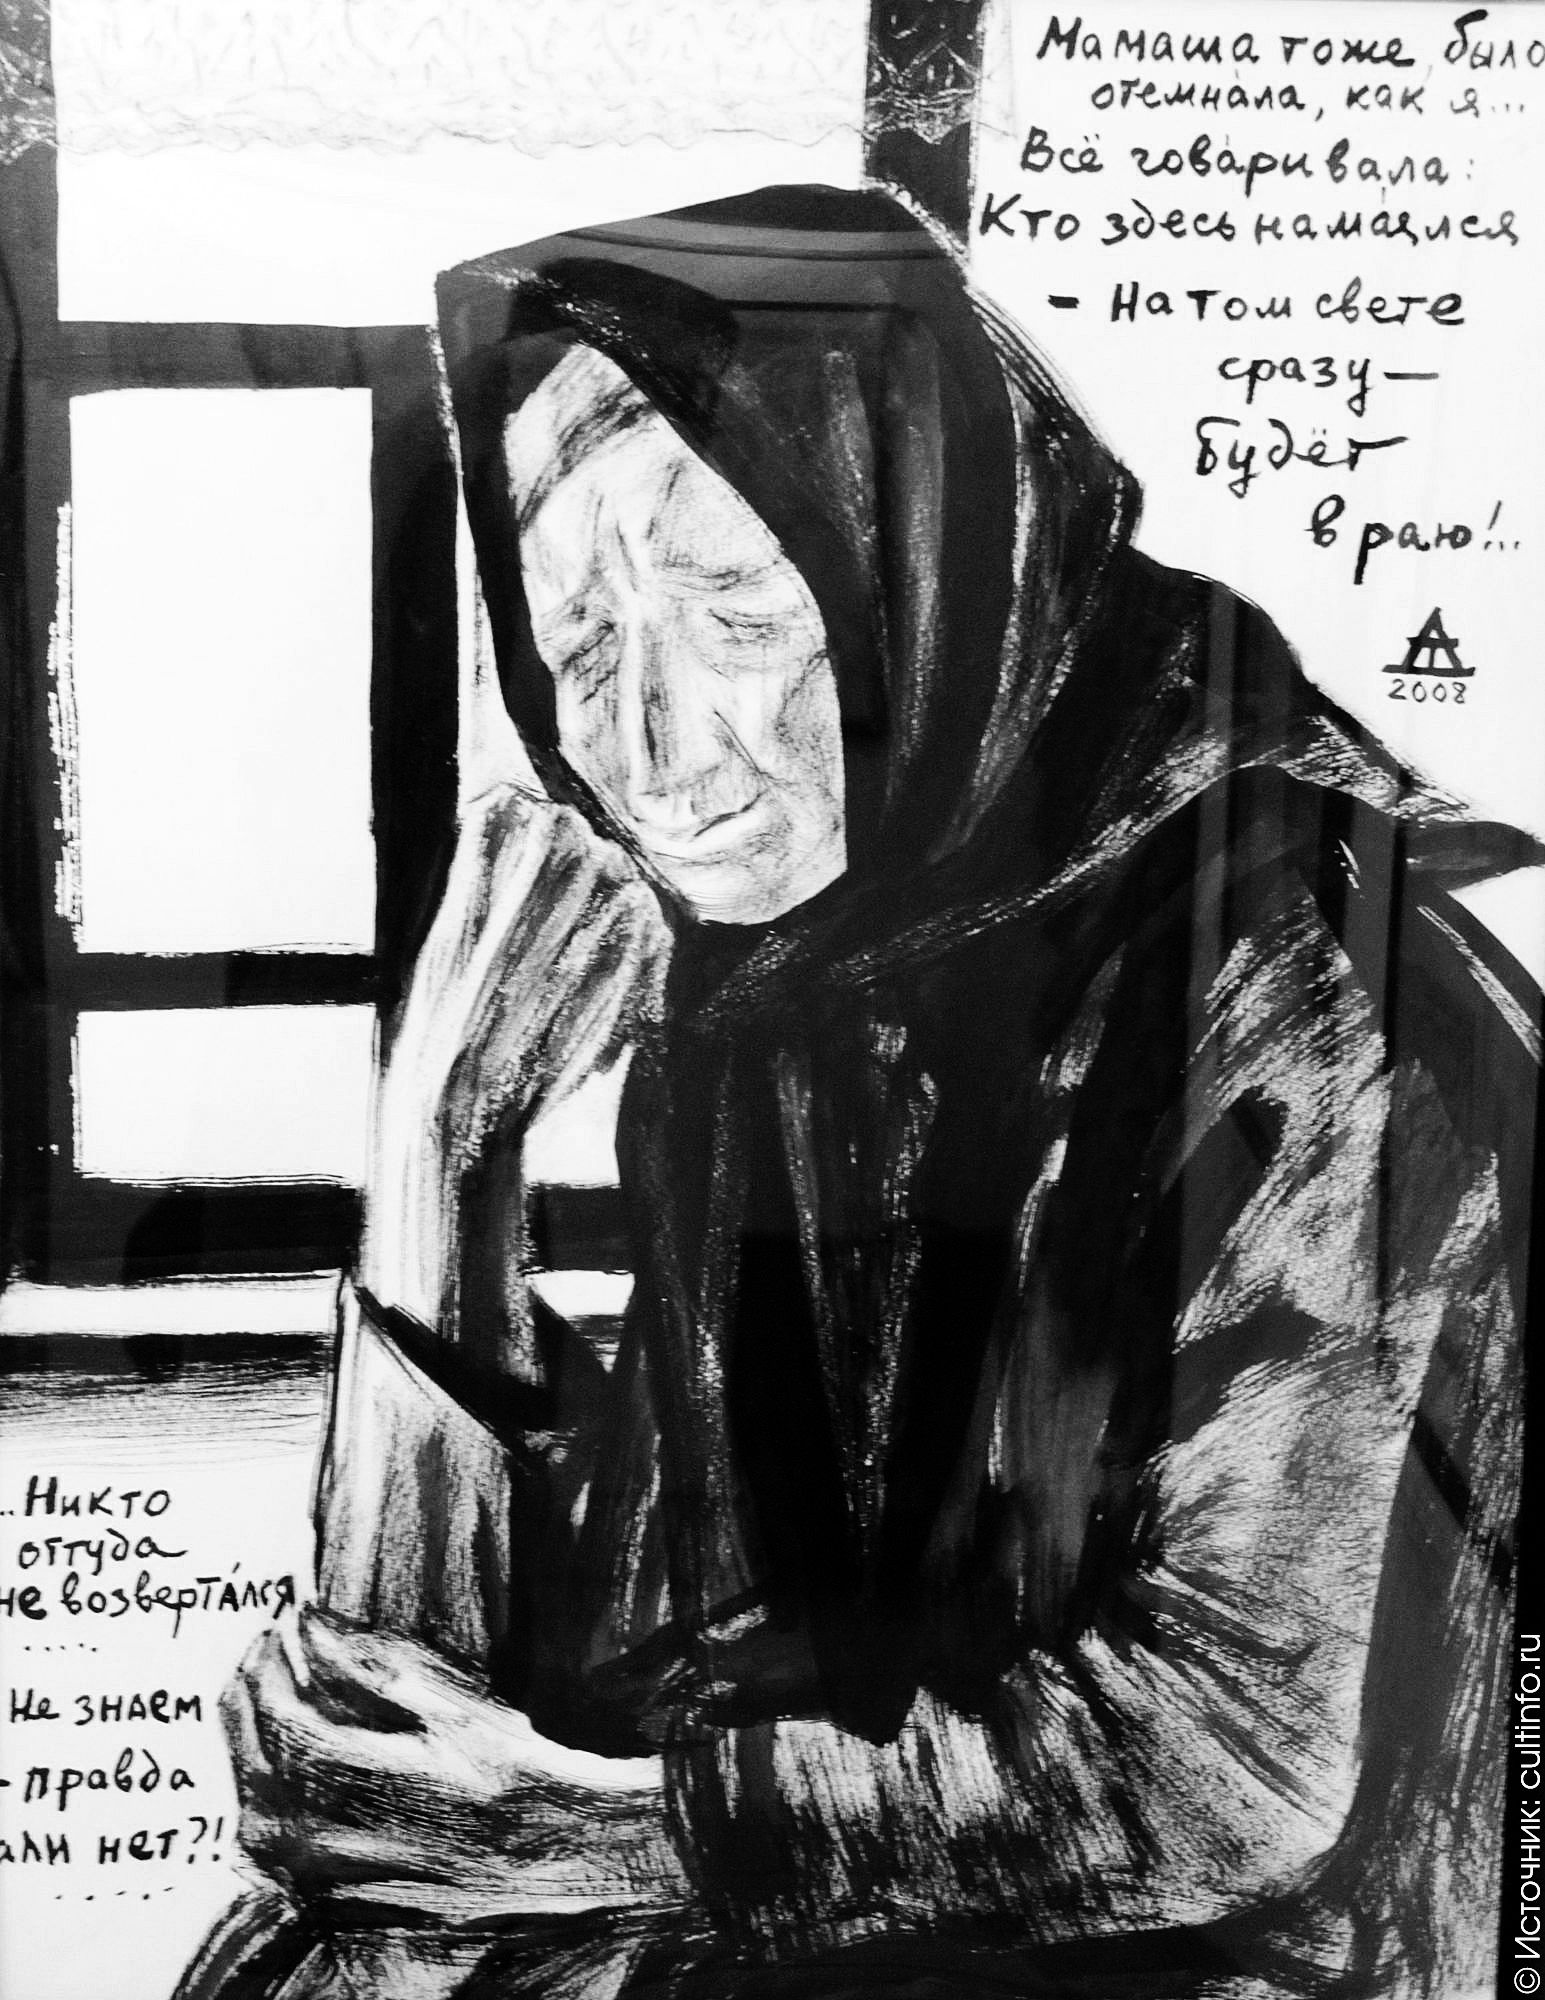 Мамаша тоже, было
отемнáла, как я...
Всё говáривала:
Кто здесь намáялся
- На том свете
сразу —
будет
в раю!..
2008
..Никто
оттуда
не возвертáлся
.....
Не знаем
- правда
али нет?!
.....
© Источник: cultinfo.ru